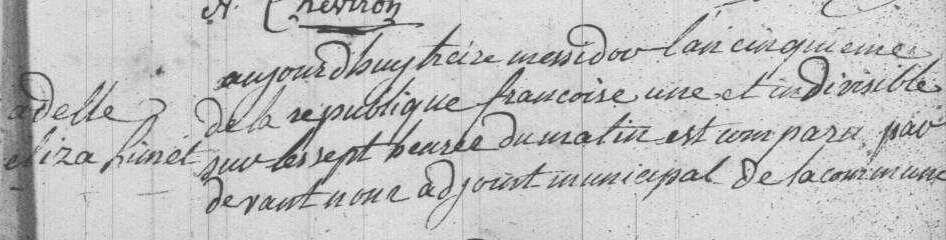 A. Cheviron
aujourdhuy treize messidor lan cinquieme
adelle de la republique francoise une et indivisible
eliza himet sur les sept heures du matin est comparu par
devant nous adjoint municipal de la commune